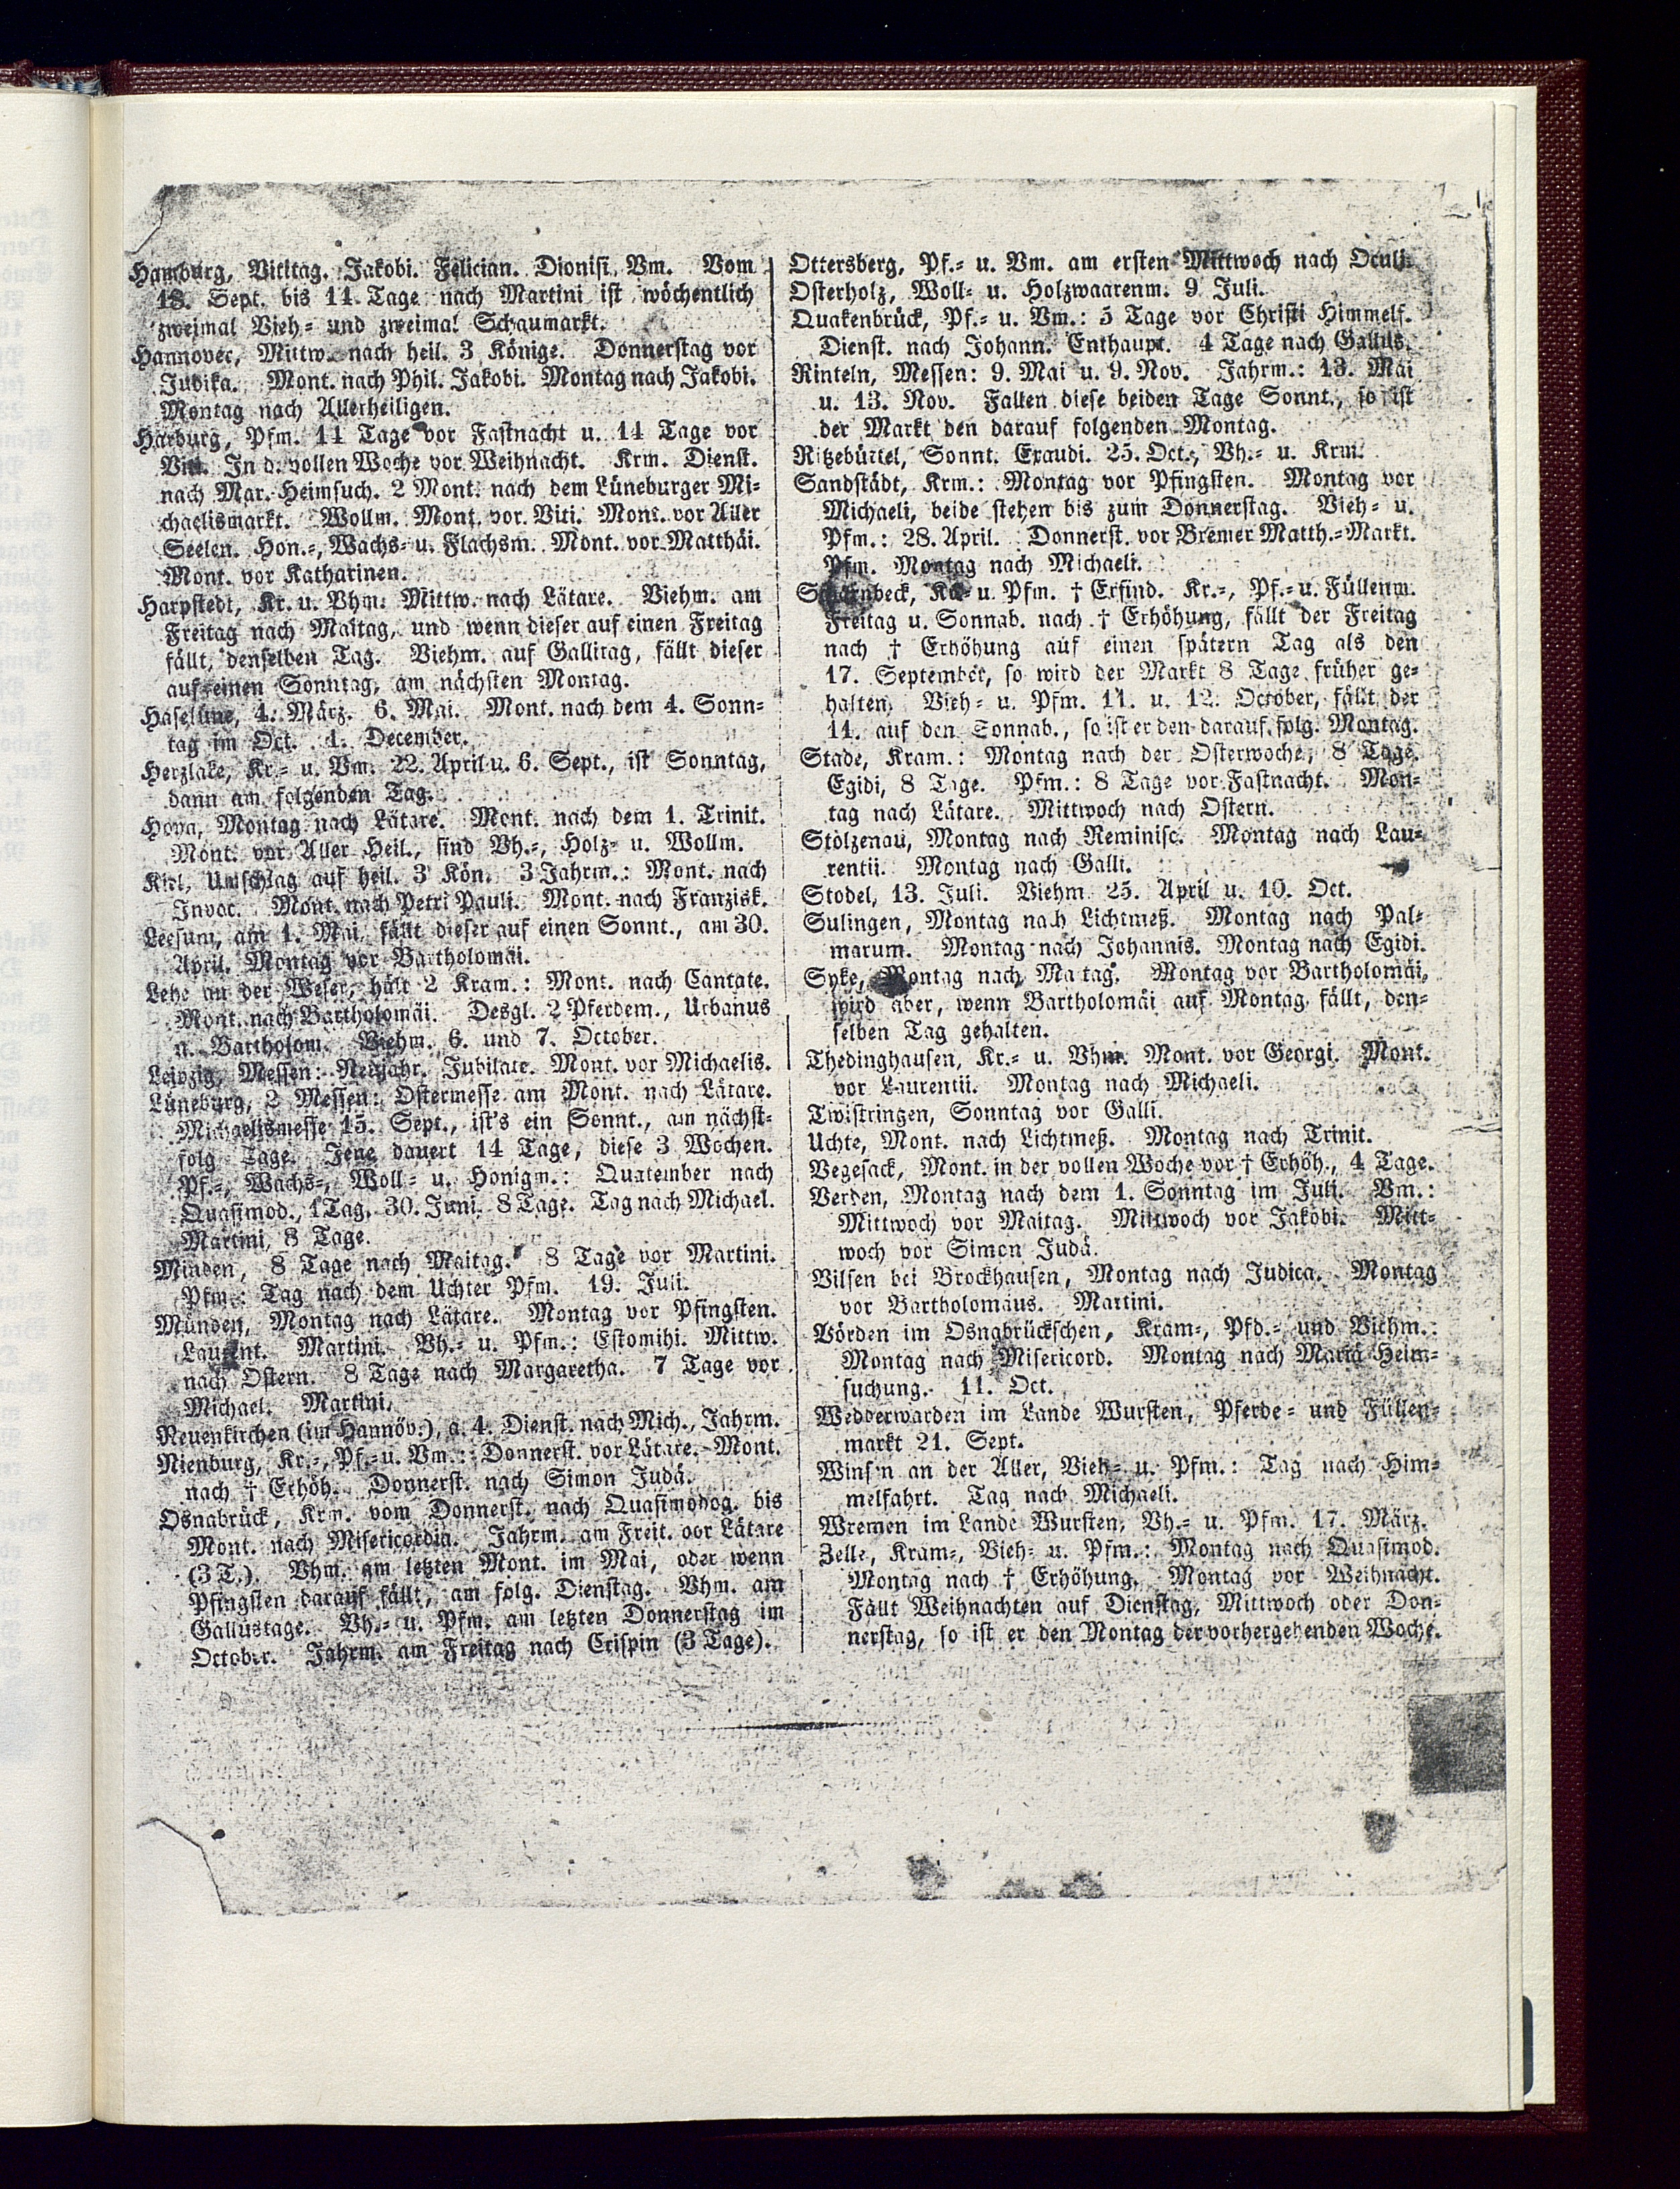 Hamburg, Vititag. Jakobi. Felician. Dionisi, Vm. Vom
18. Sept. bis 14 Tage nach Martini ist wöchentlich
zweimal Vieh- und zweimal Schaumarkt.
Hannover, Mittw. nach heil. 3 Könige. Donnerstag vor
Judika. Mont. nach Phil. Jakobi. Montag nach Jakobi.
Montag nach Allerheiligen.
Harburg, Pfm. 14 Tage vor Fastnacht u. 14 Tage vor
Viti. In d. vollen Woche vor Weihnacht. Krm. Dienst.
nach Mar. Heimsuch. 2 Mont. nach dem Lüneburger Mi-
chaelismarkt. Wollm. Mont. vor Viti. Mont. vor Aller
Seelen. Hon.-, Wachs- u. Flachsm. Mont. vor Matthäi.
Mont. vor Katharinen.
Harpstedt, Kr. u. Vhm. Mittw. nach Lätare. Viehm. am
Freitag nach Maitag, und wenn dieser auf einen Freitag
fällt, denselben Tag. Viehm. auf Gallitag, fällt dieser
auf einen Sonntag, am nächsten Montag.
Haselüne, 4. März. 6. Mai. Mont. nach dem 4. Sonn-
tag im Oct. 1. December.
Herzlake, Kr.- u. Vm. 22. April u. 6. Sept., ist Sonntag,
dann am folgenden Tag.
Hoya, Montag nach Lätare. Mont. nach dem 1. Trinit.
Mont. vor Aller Heil., sind Vh.-, Holz- u. Wollm.
Kiel, Umschlag auf heil. 3 Kön. 3 Jahrm.: Mont. nach
Invoc. Mont. nach Petri Pauli. Mont. nach Franzisk.
Leesum, am 1. Mai, fällt dieser auf einen Sonnt., am 30.
April. Montag vor Bartholomäi.
Lehe an der Weser, hält 2 Kram.: Mont. nach Cantate.
Mont. nach Bartholomäi. Desgl. 2 Pferdem., Urbanus
u. Bartholom. Viehm. 6. und 7. October.
Leipzig, Messen: Neujahr. Jubilate. Mont. vor Michaelis.
Lüneburg, 2 Messen: Ostermesse am Mont. nach Lätare.
Michaelismesse 15. Sept., ist's ein Sonnt., am nächst-
folg. Tage. Jene dauert 14 Tage, diese 3 Wochen.
Pf.-, Wachs-, Woll- u. Honigm.: Quatember nach
Quasimod., 1 Tag. 30. Juni. 8 Tage. Tag nach Michael.
Martini, 8 Tage.
Minden, 8 Tage nach Maitag. 8 Tage vor Martini.
Pfm.: Tag nach dem Uchter Pfm. 19. Juli.
Münden, Montag nach Lätare. Montag vor Pfingsten.
Laurent. Martini. Vh.- u. Pfm.: Estomihi. Mittw.
nach Ostern. 8 Tage nach Margaretha. 7 Tage vor
Michael. Martini.
Neuenkirchen (im Hannöv.), a. 4. Dienst. nach Mich., Jahrm.
Nienburg, Kr.-, Pf.- u. Vm.: Donnerst. vor Lätare. Mont.
nach † Erhöh. Donnerst. nach Simon Judä.
Osnabrück, Krm. vom Donnerst. nach Quasimodog. bis
Mont. nach Misericordiä. Jahrm. am Freit. vor Lätare
(3 T.). Vhm. am letzten Mont. im Mai, oder wenn
Pfingsten darauf fällt, am folg. Dienstag. Vhm. am
Gallustage. Vh.- u. Pfm. am letzten Donnerstag im
October. Jahrm. am Freitag nach Crispin (3 Tage).
Ottersberg, Pf.- u. Vm. am ersten Mittwoch nach Oculi.
Osterholz, Woll- u. Holzwaarenm. 9 Juli.
Quakenbrück, Pf.- u. Vm.: 5 Tage vor Christi Himmelf.
Dienst. nach Johann. Enthaupt. 4 Tage nach Gallus.
Rinteln, Messen: 9. Mai u. 9. Nov. Jahrm.: 13. Mai
u. 13. Nov. Fallen diese beiden Tage Sonnt., so ist
der Markt den darauf folgenden Montag.
Ritzebüttel, Sonnt. Exaudi. 25. Oct., Vh.- u. Krm.
Sandstädt, Krm.: Montag vor Pfingsten. Montag vor
Michaeli, beide stehen bis zum Donnerstag. Vieh- u.
Pfm.: 28. April. Donnerst. vor Bremer Matth.-Markt.
Pfm. Montag nach Michaeli.
u. Pfm. † Erfind. Kr.-, Pf.- u. Füllenm.
Freitag u. Sonnab. nach † Erhöhung, fällt der Freitag
nach † Erhöhung auf einen spätern Tag als den
17. September, so wird der Markt 8 Tage früher ge-
halten. Vieh- u. Pfm. 11. u. 12. October, fällt der
11. auf den Sonnab., so ist er den darauf folg. Montag.
Stade, Kram.: Montag nach der Osterwoche, 8 Tage.
Egidi, 8 Tage. Pfm.: 8 Tage vor Fastnacht. Mon-
tag nach Lätare. Mittwoch nach Ostern.
Stolzenau, Montag nach Reminisc. Montag nach Lau-
rentii. Montag nach Galli.
Stodel, 13. Juli. Viehm 25. April u. 10. Oct.
Sulingen, Montag nach Lichtmeß. Montag nach Pal-
marum. Montag nach Johannis. Montag nach Egidi.
Syke, Montag nach Maitag. Montag vor Bartholomäi,
wird aber, wenn Bartholomäi auf Montag fällt, den-
selben Tag gehalten.
Thedinghausen, Kr.- u. Vhm. Mont. vor Georgi. Mont.
vor Laurentii. Montag nach Michaeli.
Twistringen, Sonntag vor Galli.
Uchte, Mont. nach Lichtmeß. Montag nach Trinit.
Vegesack, Mont. in der vollen Woche vor † Erhöh., 4 Tage.
Verden, Montag nach dem 1. Sonntag im Juli. Vm.:
Mittwoch vor Maitag. Mittwoch vor Jakobi. Mitt-
woch vor Simon Judä.
Vilsen bei Brockhausen, Montag nach Judica. Montag
vor Bartholomäus. Martini.
Vörden im Osnabrückschen, Kram-, Pfd.- und Viehm.:
Montag nach Misericord. Montag nach Mariä Heim-
suchung. 11. Oct.
Wedderwarden im Lande Wursten, Pferde- und Füllen-
markt 21. Sept.
Winsen an der Aller, Vieh- u. Pfm.: Tag nach Him-
melfahrt. Tag nach Michaeli.
Wremen im Lande Wursten, Vh.- u. Pfm. 17. März.
Zelle, Kram-, Vieh- u. Pfm.: Montag nach Quasimod.
Montag nach † Erhöhung. Montag vor Weihnacht.
Fällt Weihnachten auf Dienstag, Mittwoch oder Don-
nerstag, so ist er den Montag der vorhergehenden Woche.